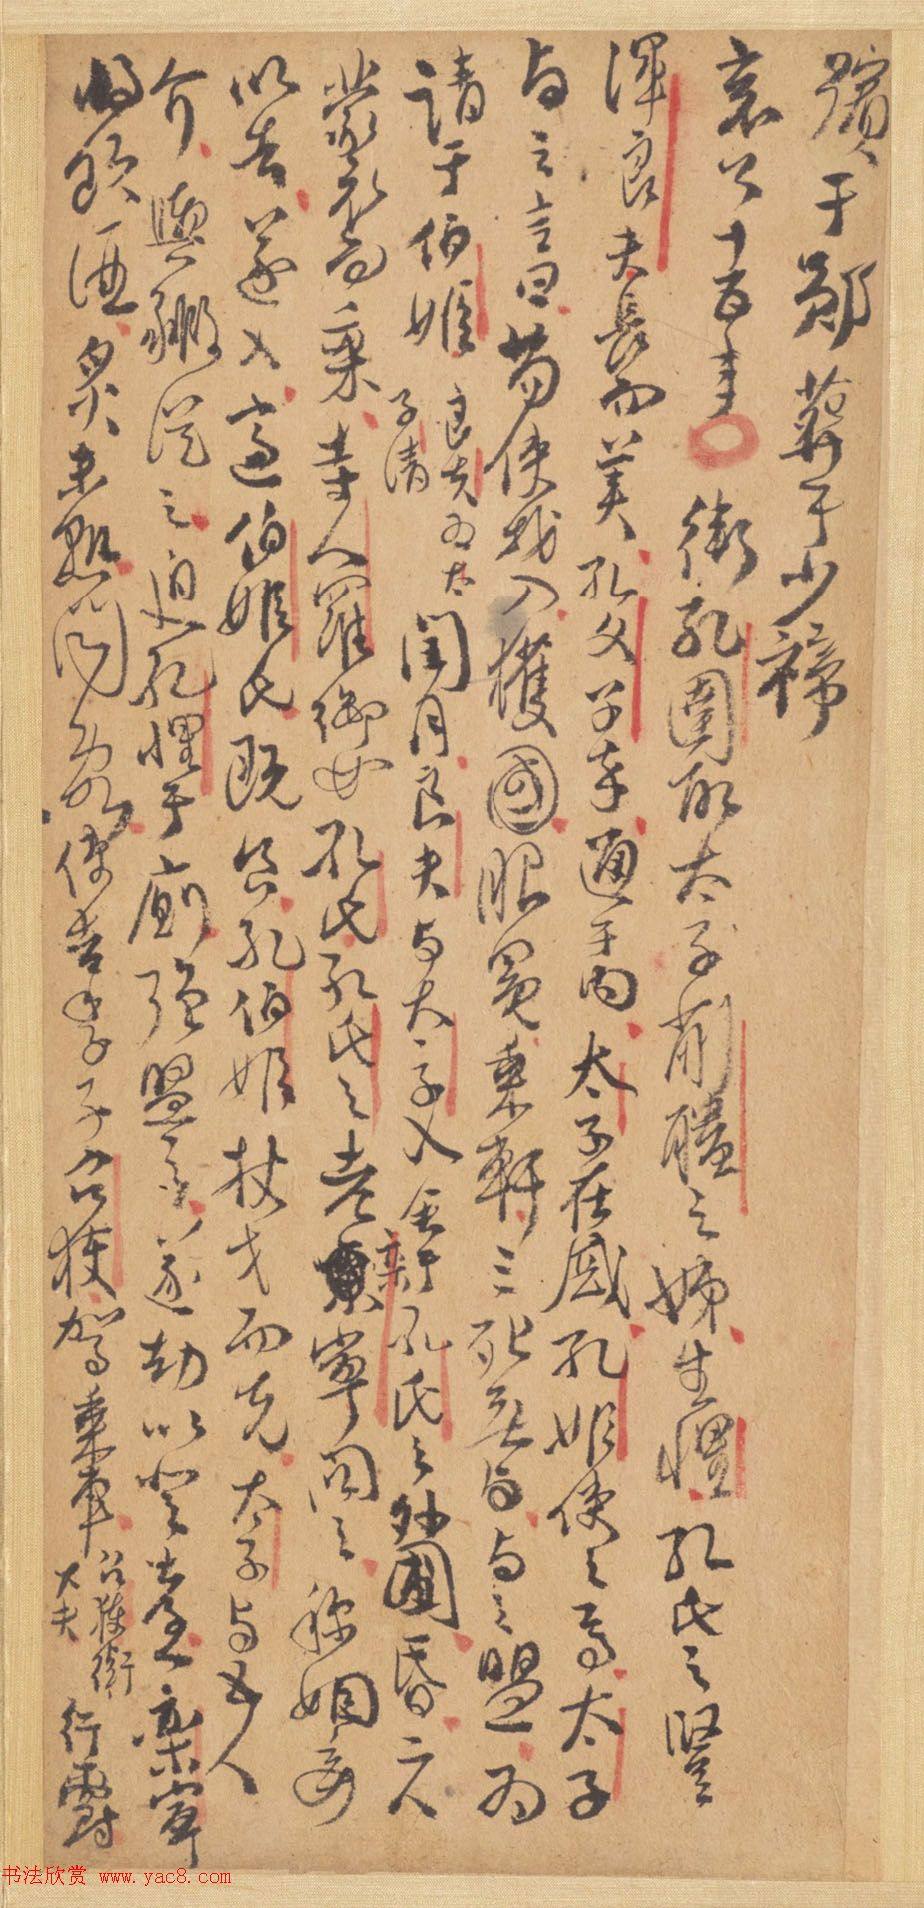 殯于鄖葬于少禘
哀公十五年 衛孔圉取太子蒯聵之姊生悝孔氏之豎
渾良夫長而美孔文子卒通于內太子在戚孔姬使之焉太子
与之言曰苟使我入獲國服冕乘軒三死無与与之盟為
請于伯姬 良夫為太子請 閏月良夫与大子入舍新孔氏之外圃昏二人
蒙衣而乘寺人羅御如孔氏孔氏之老欒甯問之称姻妾
以告遂入適伯姬氏既食孔伯姬杖戈而先太子与五人
介輿豭從之迫孔悝于廁強盟之遂劫以登臺欒甯
將飲酒炙未熟聞亂使告季子召獲駕乘車 召獲衛大夫 行爵
书法欣赏 www.yac8.com